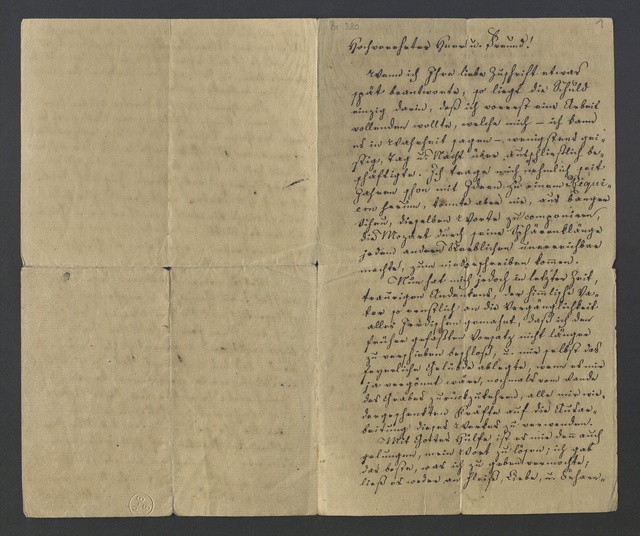 Br. 320
1
Hochverehrter Herr u. Freund!
Wenn ich Ihre liebe Zuschrift etwas
spät beantworte, so liegt die Schuld
einzig darin, daß ich vorerst eine Arbeit
vollenden wollte, welche mich – ich kann
es in Wahrheit sagen –, wenigstens gei-
stig, Tag u. Nacht über ausschließlich be-
schäftigte. Ich trage mich nehmlich seit
Jahren schon mit Ideen zu einem Requi-
em herum, konnte aber nie, aus banger
Scheu, dieselben Worte zu componieren,
die Mozart durch seine Sphärenklänge
jedem andern Sterblichen unerreichbar
machte, zum niederschreiben kommen.
Nun hat mich jedoch in letzter Zeit,
traurigen Andenkens, der himmlische Va-
ter so ernstlich an die Vergänglichkeit
alles Irdischen gemahnt, daß ich den
früher gefaßten Vorsatz nicht länger
zu verschieben beschloß, u. mir selbst das
feyerliche Gelübde ablegte, wenn es mir
ja vergönnt wäre, nochmals vom Rande
des Grabes zurückzukehren, alle mir wie-
dergeschenkten Kräfte auf die Ausar-
beitung dieses Werkes zu verwenden.
Mit Gottes Hülfe ist es mir denn auch
gelungen, mein Wort zu lösen; ich gab
das beste, was ich zu geben vermochte,
ließ es weder an Fleiß, Liebe, u. Schwer-